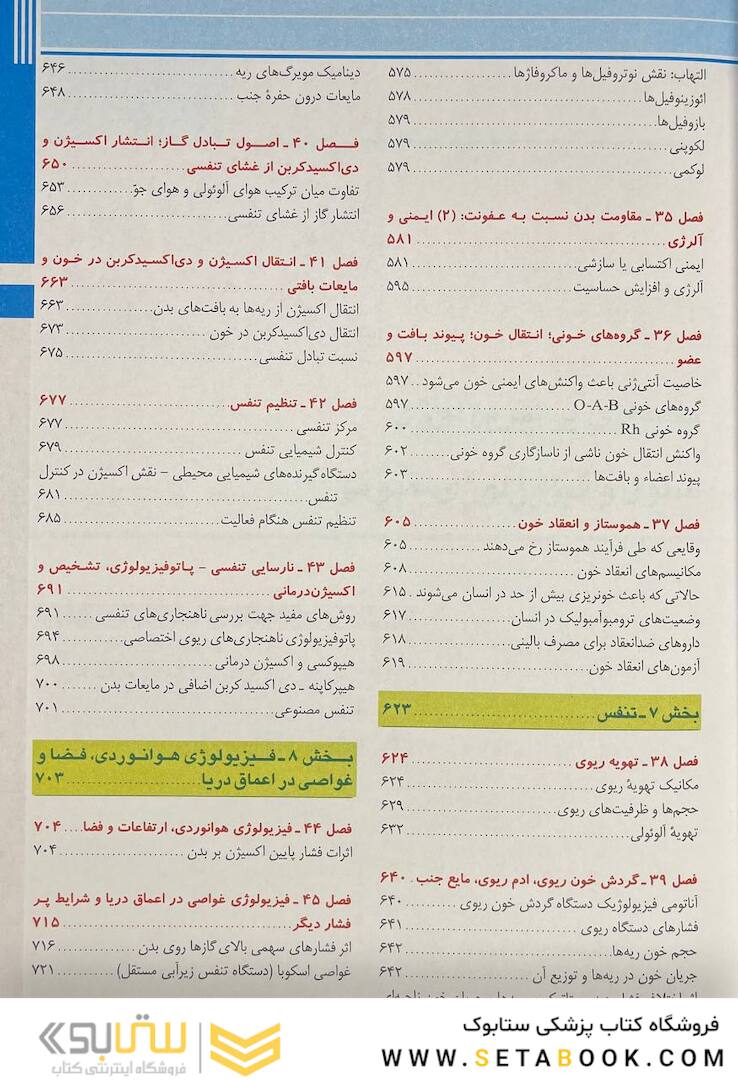 التهاب: نقش نوتروفیل‌ها و ماکروفاژها ........ ۵۷۵
ائوزینوفیل‌ها ........ ۵۷۸
بازوفیل‌ها ........ ۵۷۹
لکوپنی ........ ۵۷۹
لوکمی ........ ۵۷۹
فصل ۳۵ ـ مقاومت بدن نسبت به عفونت: (۲) ایمنی و
آلرژی ........ ۵۸۱
ایمنی اکتسابی یا سازشی ........ ۵۸۱
آلرژی و افزایش حساسیت ........ ۵۹۵
فصل ۳۶ ـ گروه‌های خونی؛ انتقال خون؛ پیوند بافت و
عضو ........ ۵۹۷
خاصیت آنتی‌ژنی باعث واکنش‌های ایمنی خون می‌شود .. ۵۹۷
گروه‌های خونی O-A-B ........ ۵۹۷
گروه خونی Rh ........ ۶۰۰
واکنش انتقال خون ناشی از ناسازگاری گروه خونی ........ ۶۰۲
پیوند اعضاء و بافت‌ها ........ ۶۰۳
فصل ۳۷ ـ هموستاز و انعقاد خون ........ ۶۰۵
وقایعی که طی فرآیند هموستاز رخ می‌دهند ........ ۶۰۵
مکانیسم‌های انعقاد خون ........ ۶۰۸
حالاتی که باعث خونریزی بیش از حد در انسان می‌شوند . ۶۱۵
وضعیت‌های ترومبوآمبولیک در انسان ........ ۶۱۷
داروهای ضدانعقاد برای مصرف بالینی ........ ۶۱۸
آزمون‌های انعقاد خون ........ ۶۱۹
بخش ۷ ـ تنفس ........ ۶۲۳
فصل ۳۸ ـ تهویه ریوی ........ ۶۲۴
مکانیک تهویهٔ ریوی ........ ۶۲۴
حجم‌ها و ظرفیت‌های ریوی ........ ۶۲۹
تهویهٔ آلوئولی ........ ۶۳۲
فصل ۳۹ ـ گردش خون ریوی، ادم ریوی، مایع جنب . ۶۴۰
آناتومی فیزیولوژیک دستگاه گردش خون ریوی ........ ۶۴۰
فشارهای دستگاه ریوی ........ ۶۴۱
حجم خون ریه‌ها ........ ۶۴۲
جریان خون در ریه‌ها و توزیع آن ........ ۶۴۲
دینامیک مویرگ‌های ریه ........ ۶۴۶
مایعات درون حفرهٔ جنب ........ ۶۴۸
فصل ۴۰ ـ اصول تبادل گاز؛ انتشار اکسیژن و
دی‌اکسیدکربن از غشای تنفسی ........ ۶۵۰
تفاوت میان ترکیب هوای آلوئولی و هوای جوّ ........ ۶۵۳
انتشار گاز از غشای تنفسی ........ ۶۵۶
فصل ۴۱ ـ انتقال اکسیژن و دی‌اکسیدکربن در خون و
مایعات بافتی ........ ۶۶۳
انتقال اکسیژن از ریه‌ها به بافت‌های بدن ........ ۶۶۳
انتقال دی‌اکسیدکربن در خون ........ ۶۷۳
نسبت تبادل تنفسی ........ ۶۷۵
فصل ۴۲ ـ تنظیم تنفس ........ ۶۷۷
مرکز تنفسی ........ ۶۷۷
کنترل شیمیایی تنفس ........ ۶۷۹
دستگاه گیرنده‌های شیمیایی محیطی - نقش اکسیژن در کنترل
تنفس ........ ۶۸۱
تنظیم تنفس هنگام فعالیت ........ ۶۸۵
فصل ۴۳ ـ نارسایی تنفسی - پاتوفیزیولوژی، تشخیص و
اکسیژن‌درمانی ........ ۶۹۱
روش‌های مفید جهت بررسی ناهنجاری‌های تنفسی ........ ۶۹۱
پاتوفیزیولوژی ناهنجاری‌های ریوی اختصاصی ........ ۶۹۴
هیپوکسی و اکسیژن درمانی ........ ۶۹۸
هیپرکاپنه ـ دی اکسید کربن اضافی در مایعات بدن ........ ۷۰۰
تنفس مصنوعی ........ ۷۰۱
بخش ۸ ـ فیزیولوژی هوانوردی، فضا و
غواصی در اعماق دریا ........ ۷۰۳
فصل ۴۴ ـ فیزیولوژی هوانوردی، ارتفاعات و فضا .... ۷۰۴
اثرات فشار پایین اکسیژن بر بدن ........ ۷۰۴
فصل ۴۵ ـ فیزیولوژی غواصی در اعماق دریا و شرایط پر
فشار دیگر ........ ۷۱۵
اثر فشارهای سهمی بالای گازها روی بدن ........ ۷۱۶
غواصی اسکوبا (دستگاه تنفس زیرآبی مستقل) ........ ۷۲۱
فروشگاه کتاب پزشکی ستابوک
WWW.SETABOOK.COM
ستابوک
فروشگاه اینترنتی کتاب